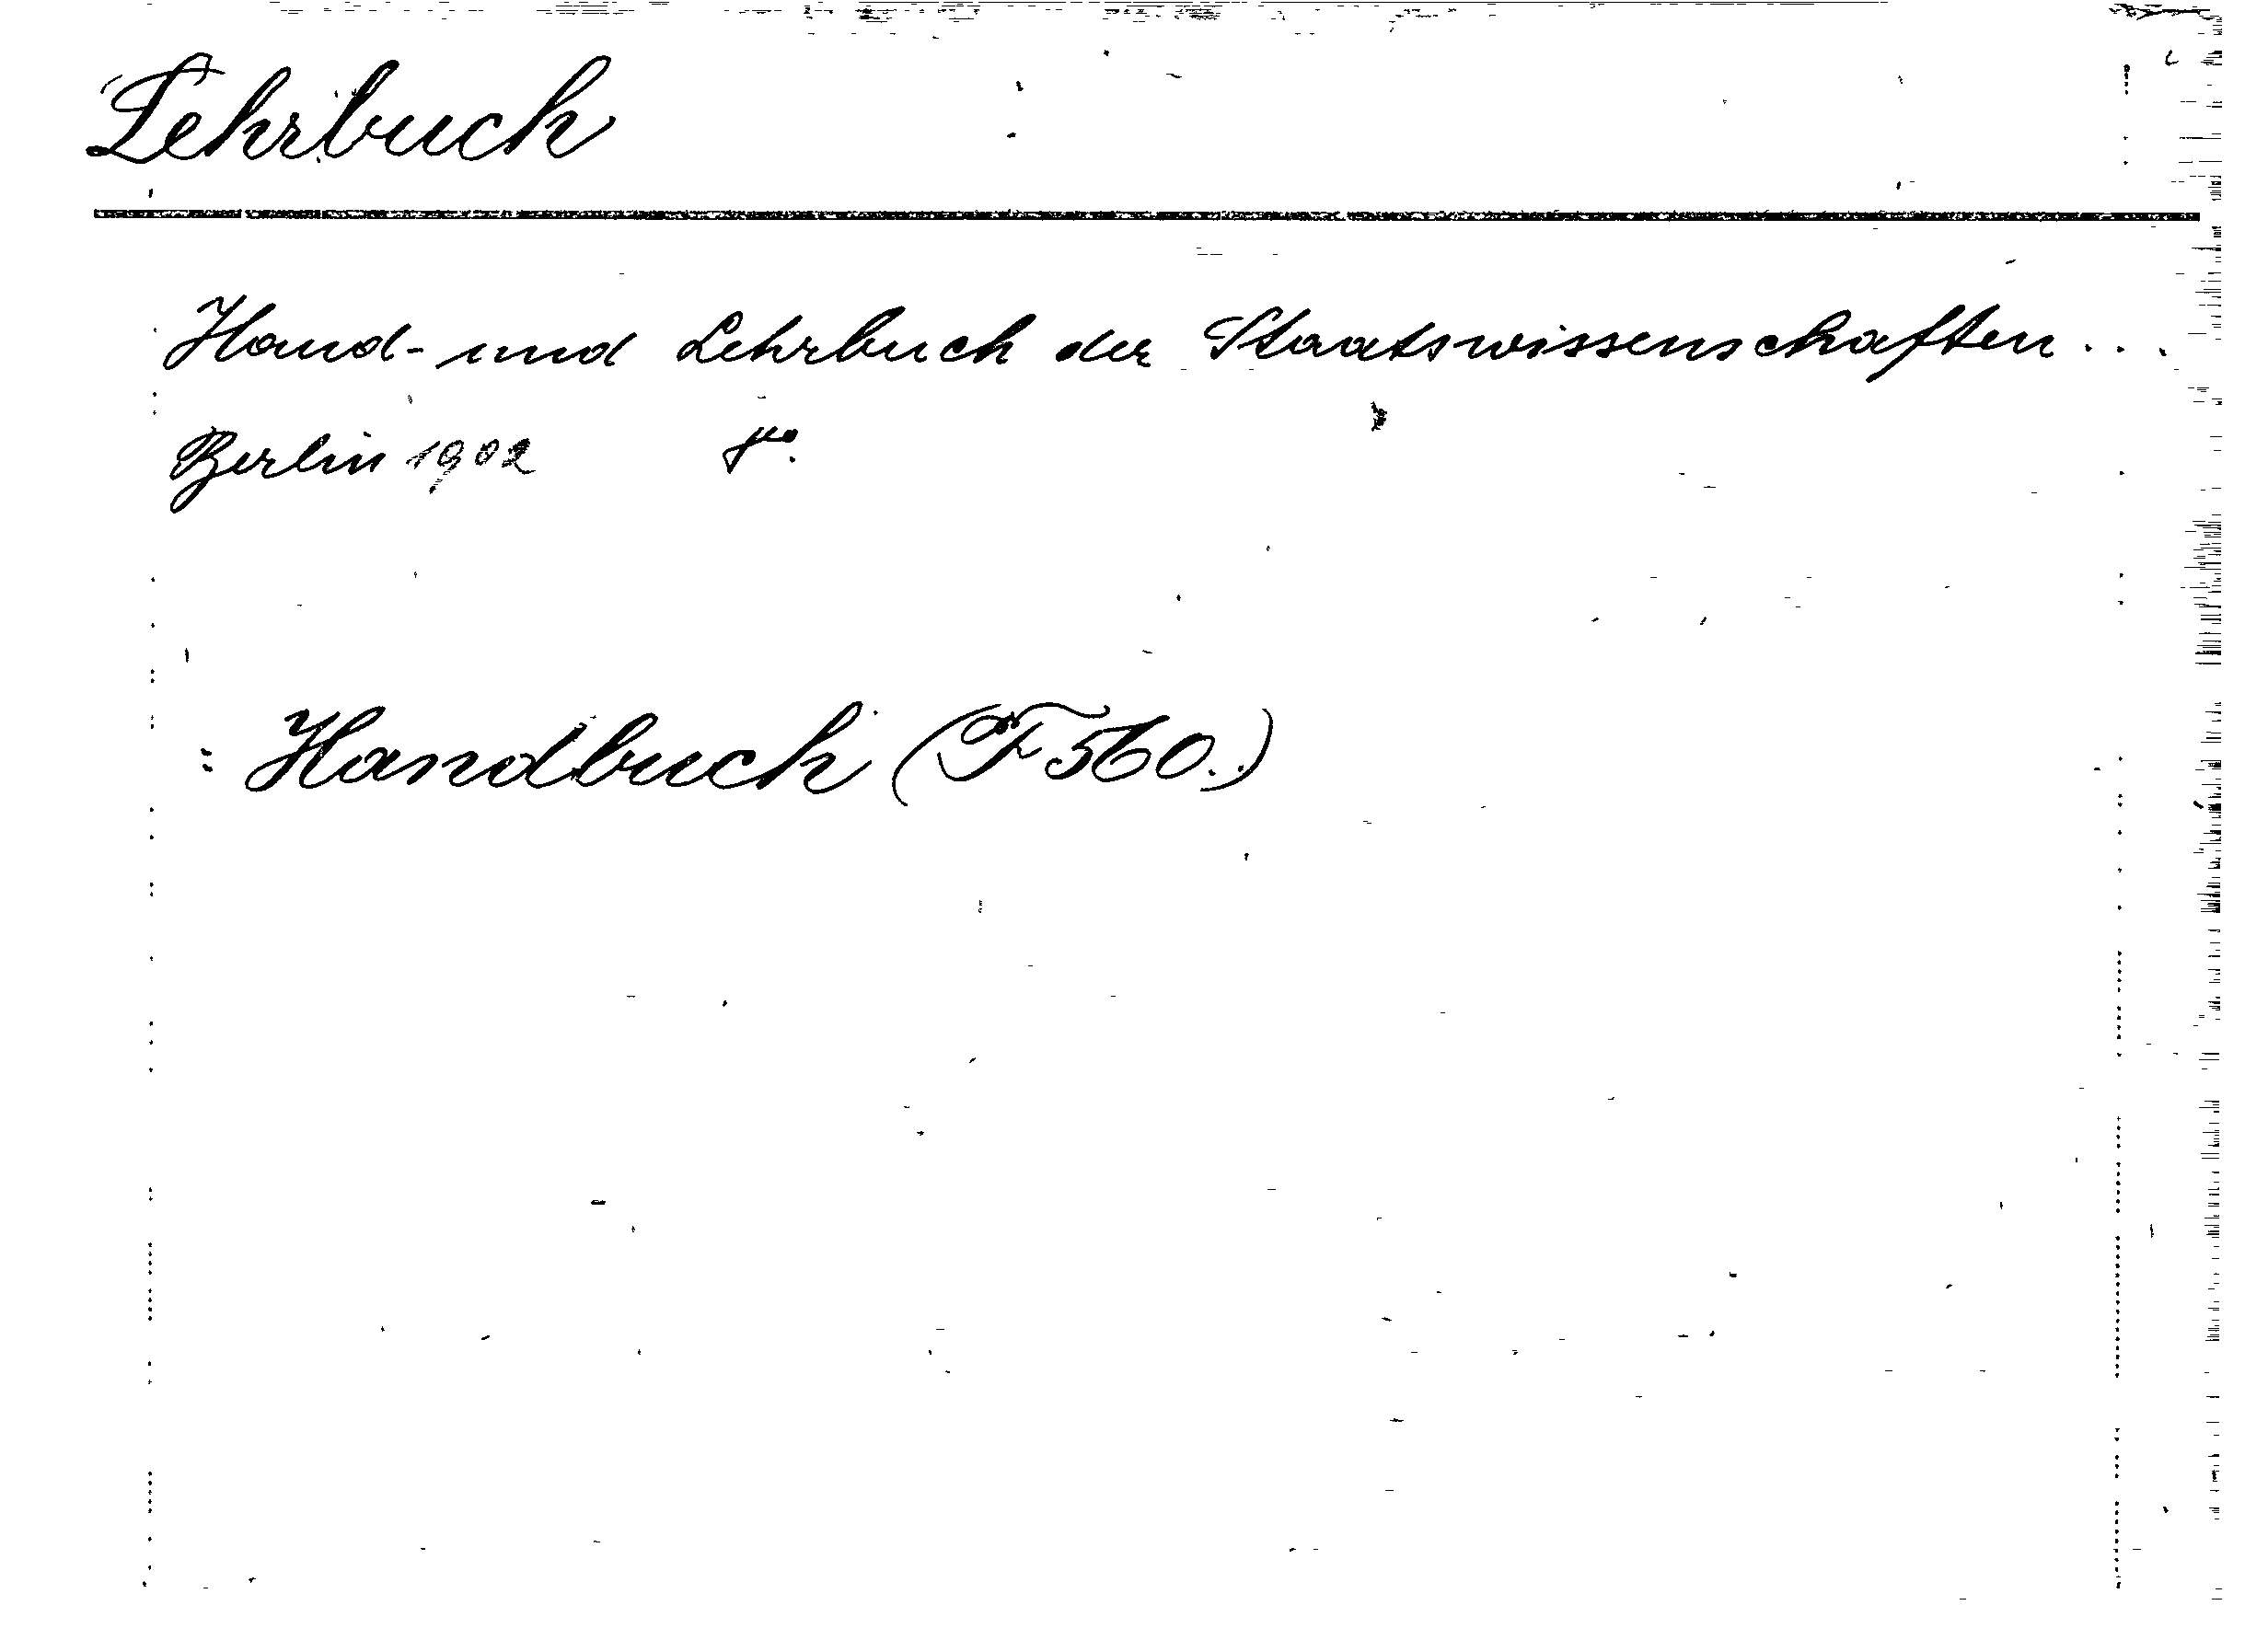 Lehrbuch
Hand- und Lehrbuch der Staatswissenschaften...
Berlin 1902
: Handbuch (F 560.)